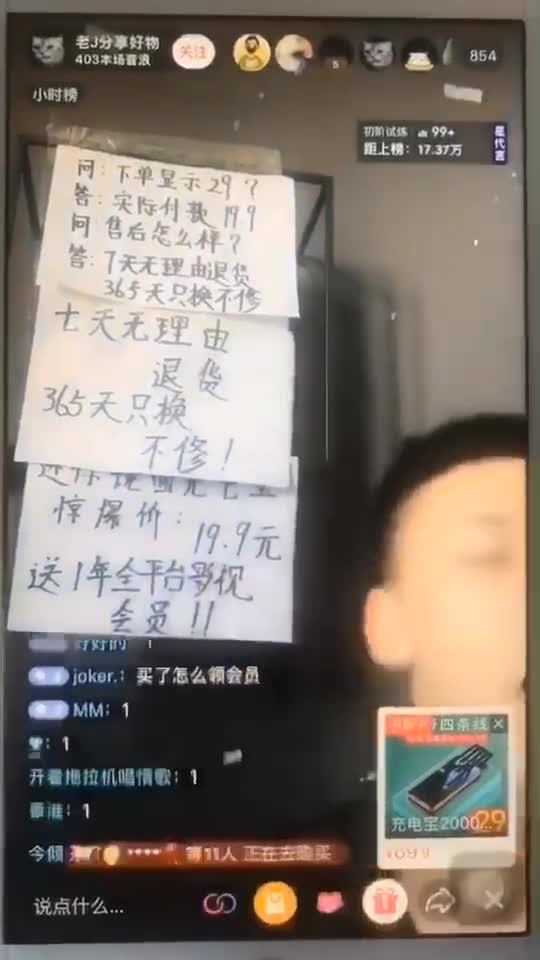 老J分享好物
403本场音浪
关注
5
854
小时榜
初阶试炼 99+
距上榜：17.37万
星代言
问：下单显示29？
答：实际付款199
问 售后怎么样？
答：7天无理由退货
365天只换不修
七天无理由
退货
365天只换
不修！
惊爆价：
19.9元
送1年全平台影视
会员！！
好好的
joker.：买了怎么领会员
MM：1
：1
开着拖拉机唱情歌：1
：1
四条线
充电宝2000...
29
等11人 正在去购买
说点什么...